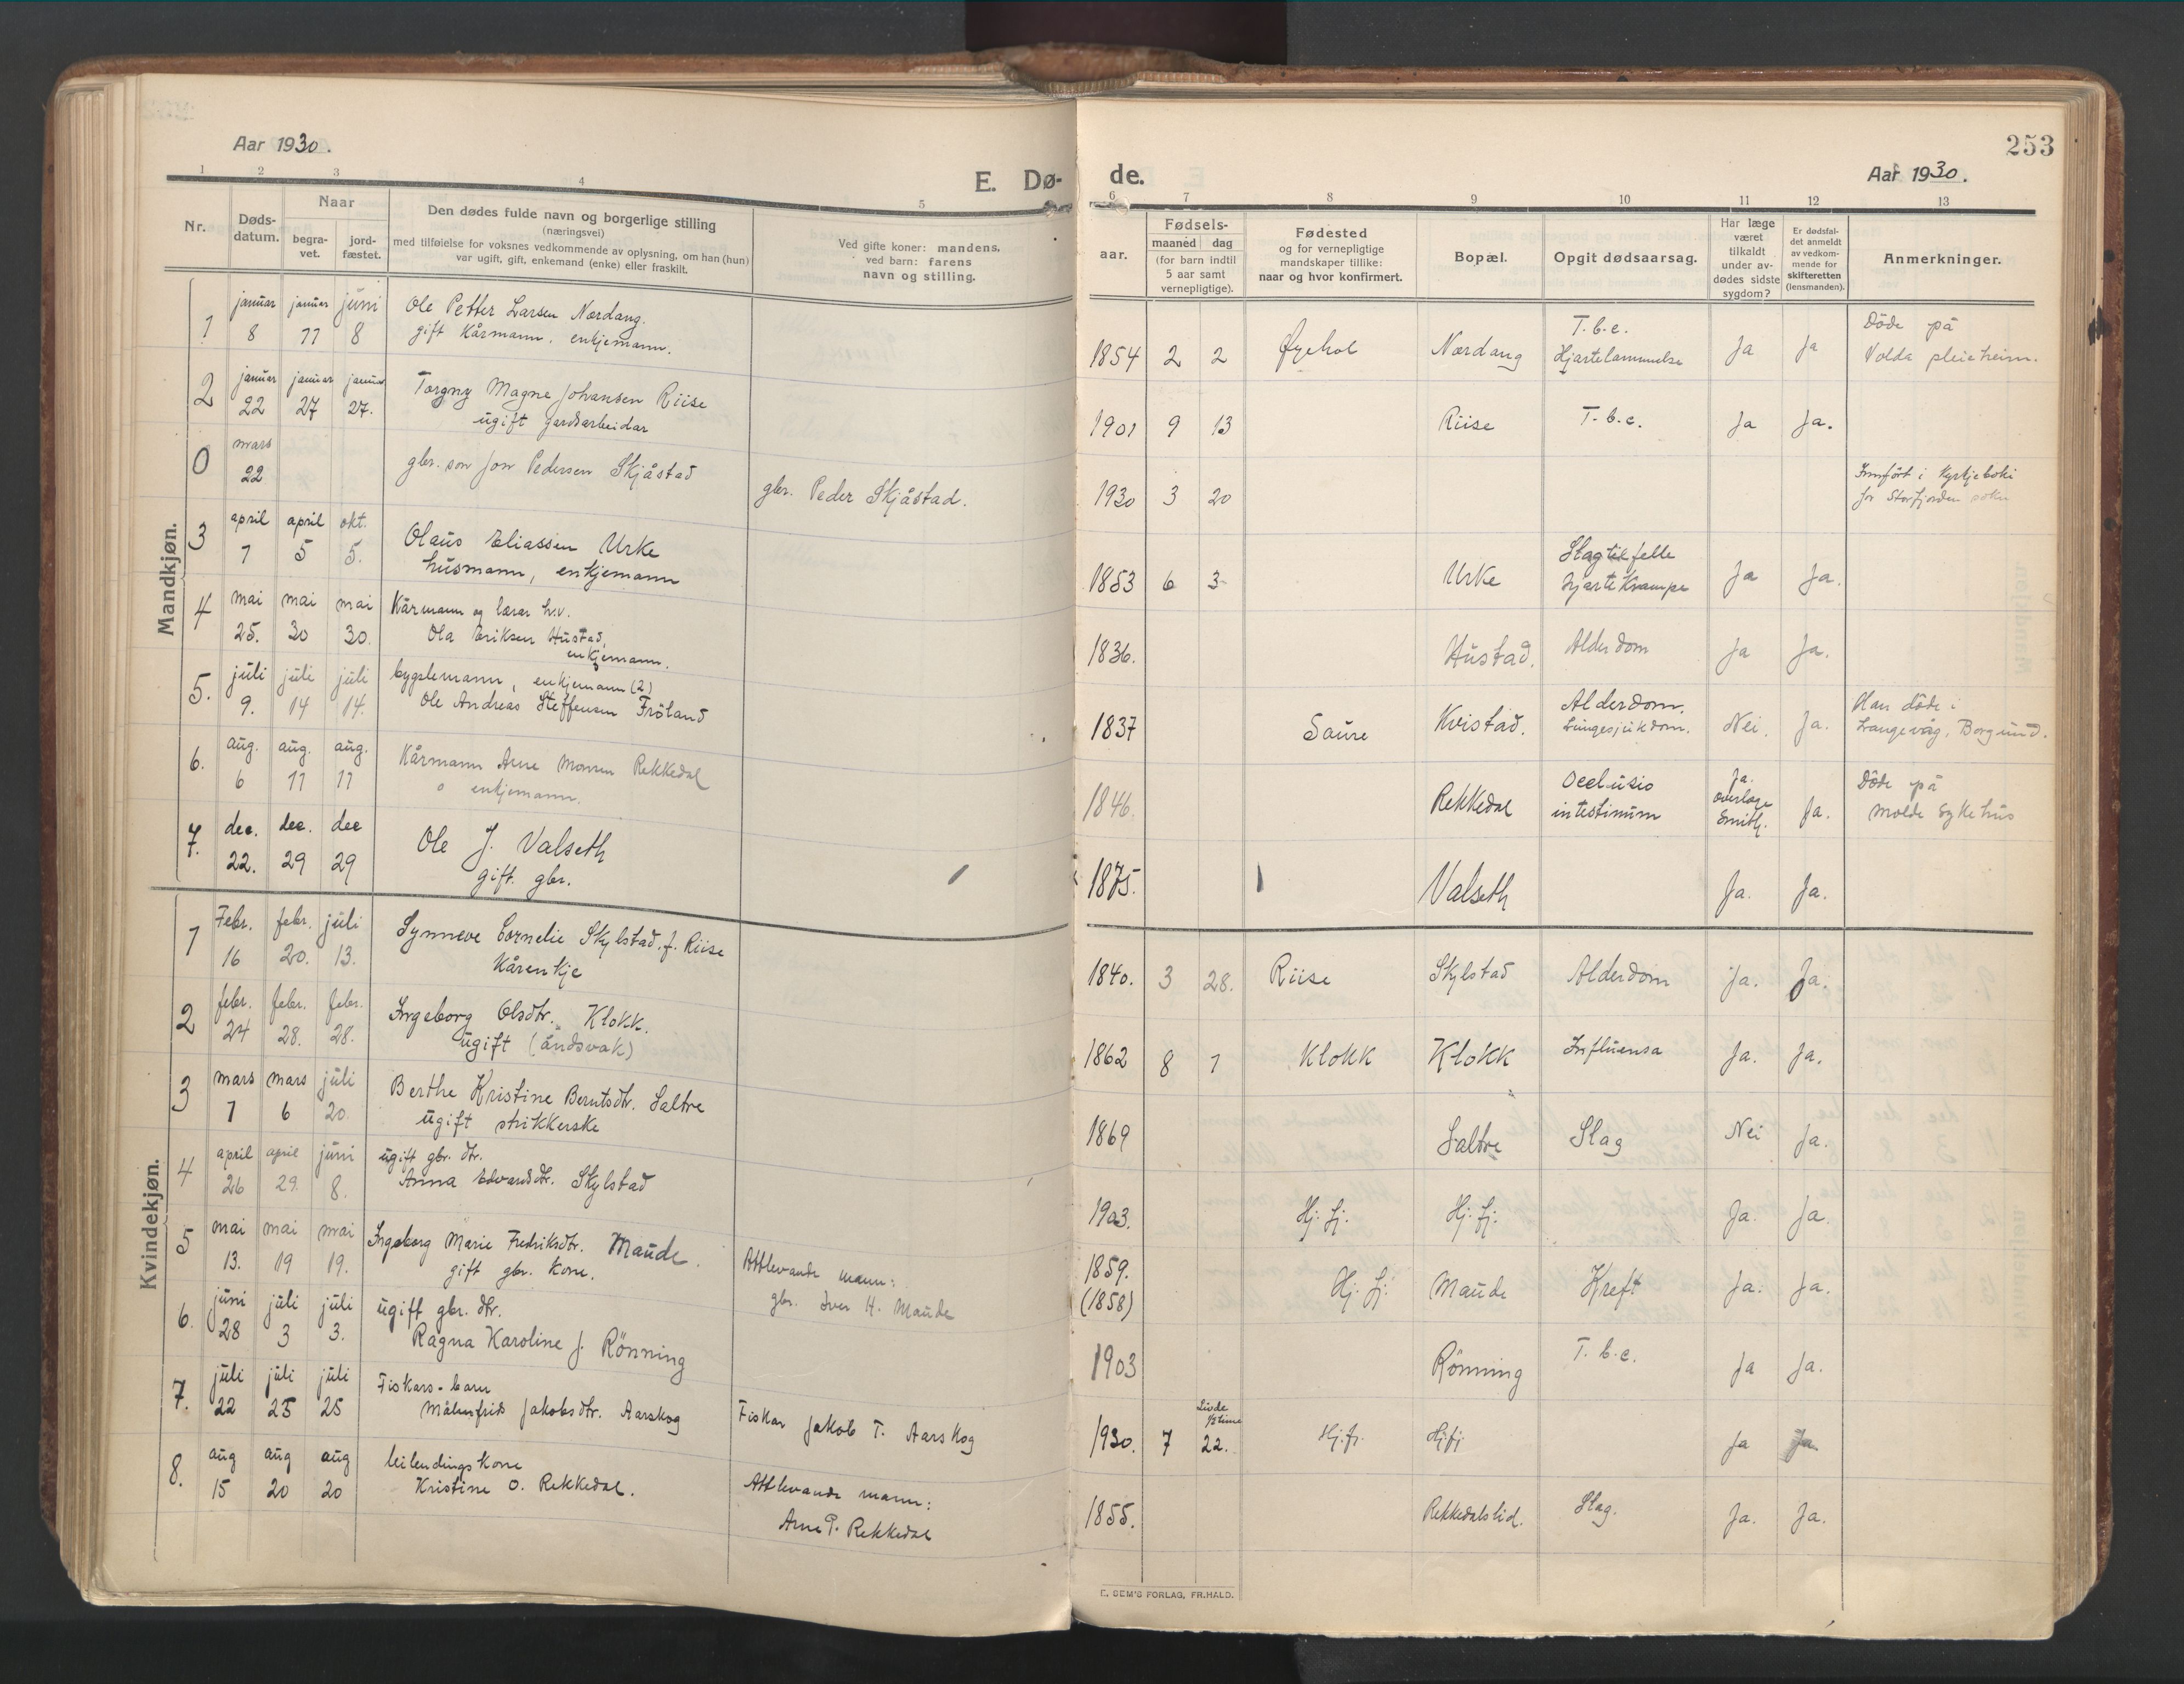 Aar 1930.
E. Dø-
1 2 3 4 5
Nr.
Døds-
datum.
Naar
begra-
vet.
jord-
fæstet.
Den dødes fulde navn og borgerlige stilling
(næringsvei)
med tilføielse for voksnes vedkommende av oplysning, om han (hun)
var ugift, gift, enkemand (enke) eller fraskilt.
Ved gifte koner: mandens,
ved barn: farens
navn og stilling.
Mandkjøn.
januar januar juni Ole Petter Larsen Nordang.
1 8 11 8 gift Kårmann, enkjemann.
januar januar januar Torgny Magne Johansen Riise
2 22 27 27. ugift gardsarbeidar
mars
0 22 gbr. son Jon Pedersen Skjåstad gbr. Peder Skjåstad.
april april okt. Olaus Eliassen Urke
3 1 5 5. husmann, enkjemann
mai mai mai Kårmann og lærar h.v.
4 25. 30 30. Ola Eriksen Hustad,
enkjemann.
juli juli juli bygslemann, enkjemann (2)
5. 9. 14 14. Ole Andreas Steffensen Fröland
aug. aug. aug. Kårmann Arne Monsen Rekkedal
6. 6 11 11 enkjemann.
dec. dec. dec Ole J. Valseth
7. 22. 29 29 gift. gbr.
Kvindekjøn.
Febr. febr. juli Synneve Cornelie Skylstad. f. Riise
1 16 20. 13. Kårenkje
febr. febr. febr. Ingeborg Olsdtr. Klokk.
2 24 28. 28. ugift (åndsvak)
mars mars juli Berthe Kristine Berntsdtr. Saltre
3 1 6 20. ugift strikkerske
april april juni ugift gbr. dtr.
4 26 29. 8. Anna Edvardsdtr. Skylstad
mai mai mai Ingeborg Marie Fredriksdtr. Maude. Attlevande mann:
5 13. 19 19. gift gbr. kone. gbr. Iver H. Maude
juni juli juli ugift gbr. dtr.
6. 28 3 3. Ragna Karoline J. Rönning
juli juli juli Fiskars-barn
7. 22 25 25 Målmfrid Jakobsdtr. Aarskog Fiskar Jakob T. Aarskog
aug aug aug leilendingskone
8. 15 20 20 Kristine O. Rekkedal. Attlevande mann:
Arne P. Rekkedal
de.
Aar 1930.
253
6 7 8 9 10 11 12 13
aar.
Fødsels-
maaned dag
(for barn indtil
5 aar samt
vernepligtige).
Fødested
og for vernepligtige
mandskaper tillike:
naar og hvor konfirmert.
Bopæl.
Opgit dødsaarsag.
Har læge
været
tilkaldt
under av-
dødes sidste
sygdom?
Er dødsfal-
det anmeldt
av vedkom-
mende for
skifteretten
(lensmanden).
Anmerkninger.
T.b.c. Döde på
1854 2 2 Øyehol Nordang Hjartelammelse Ja Ja Volda pleieheim.
1901 9 13 Riise T.b.c. Ja Ja.
Innfört i Kyrkjeboki
1930 3 20 for Storfjorden sokn
Slagtilfelle
1853 6 3 Urke Hjartekrampe Ja Ja.
1836. Hustad. Alderdom Ja Ja.
Alderdom. Han döde i
1837 Saure Kvistad. Lungesjukdom. Nei. Ja. Langevåg, Borgund.
Occlusio Ja. Döde på
1846. Rekkedal intestinum overlæge Smith. Ja. Molde sykehus
1875. Valseth Ja. Ja.
1840. 3 28. Riise Skylstad Alderdom Ja. Ja.
1862 8 1 Klokk Klokk Influensa Ja. Ja.
1869 Saltre Slag Nei Ja.
1903. Hj. fj. Hj. fj. Ja. Ja.
1859.
(1858) Hj. fj. Maude Kreft Ja. Ja.
1903 Rönning T.b.c. Ja Ja.
Livde
½ time
1930. 7 22. Hj.fj. Hj.fj Ja Ja.
1855. Rekkedalslid. Slag. Ja. Ja.
E. SEM'S FORLAG, FR.HALD.